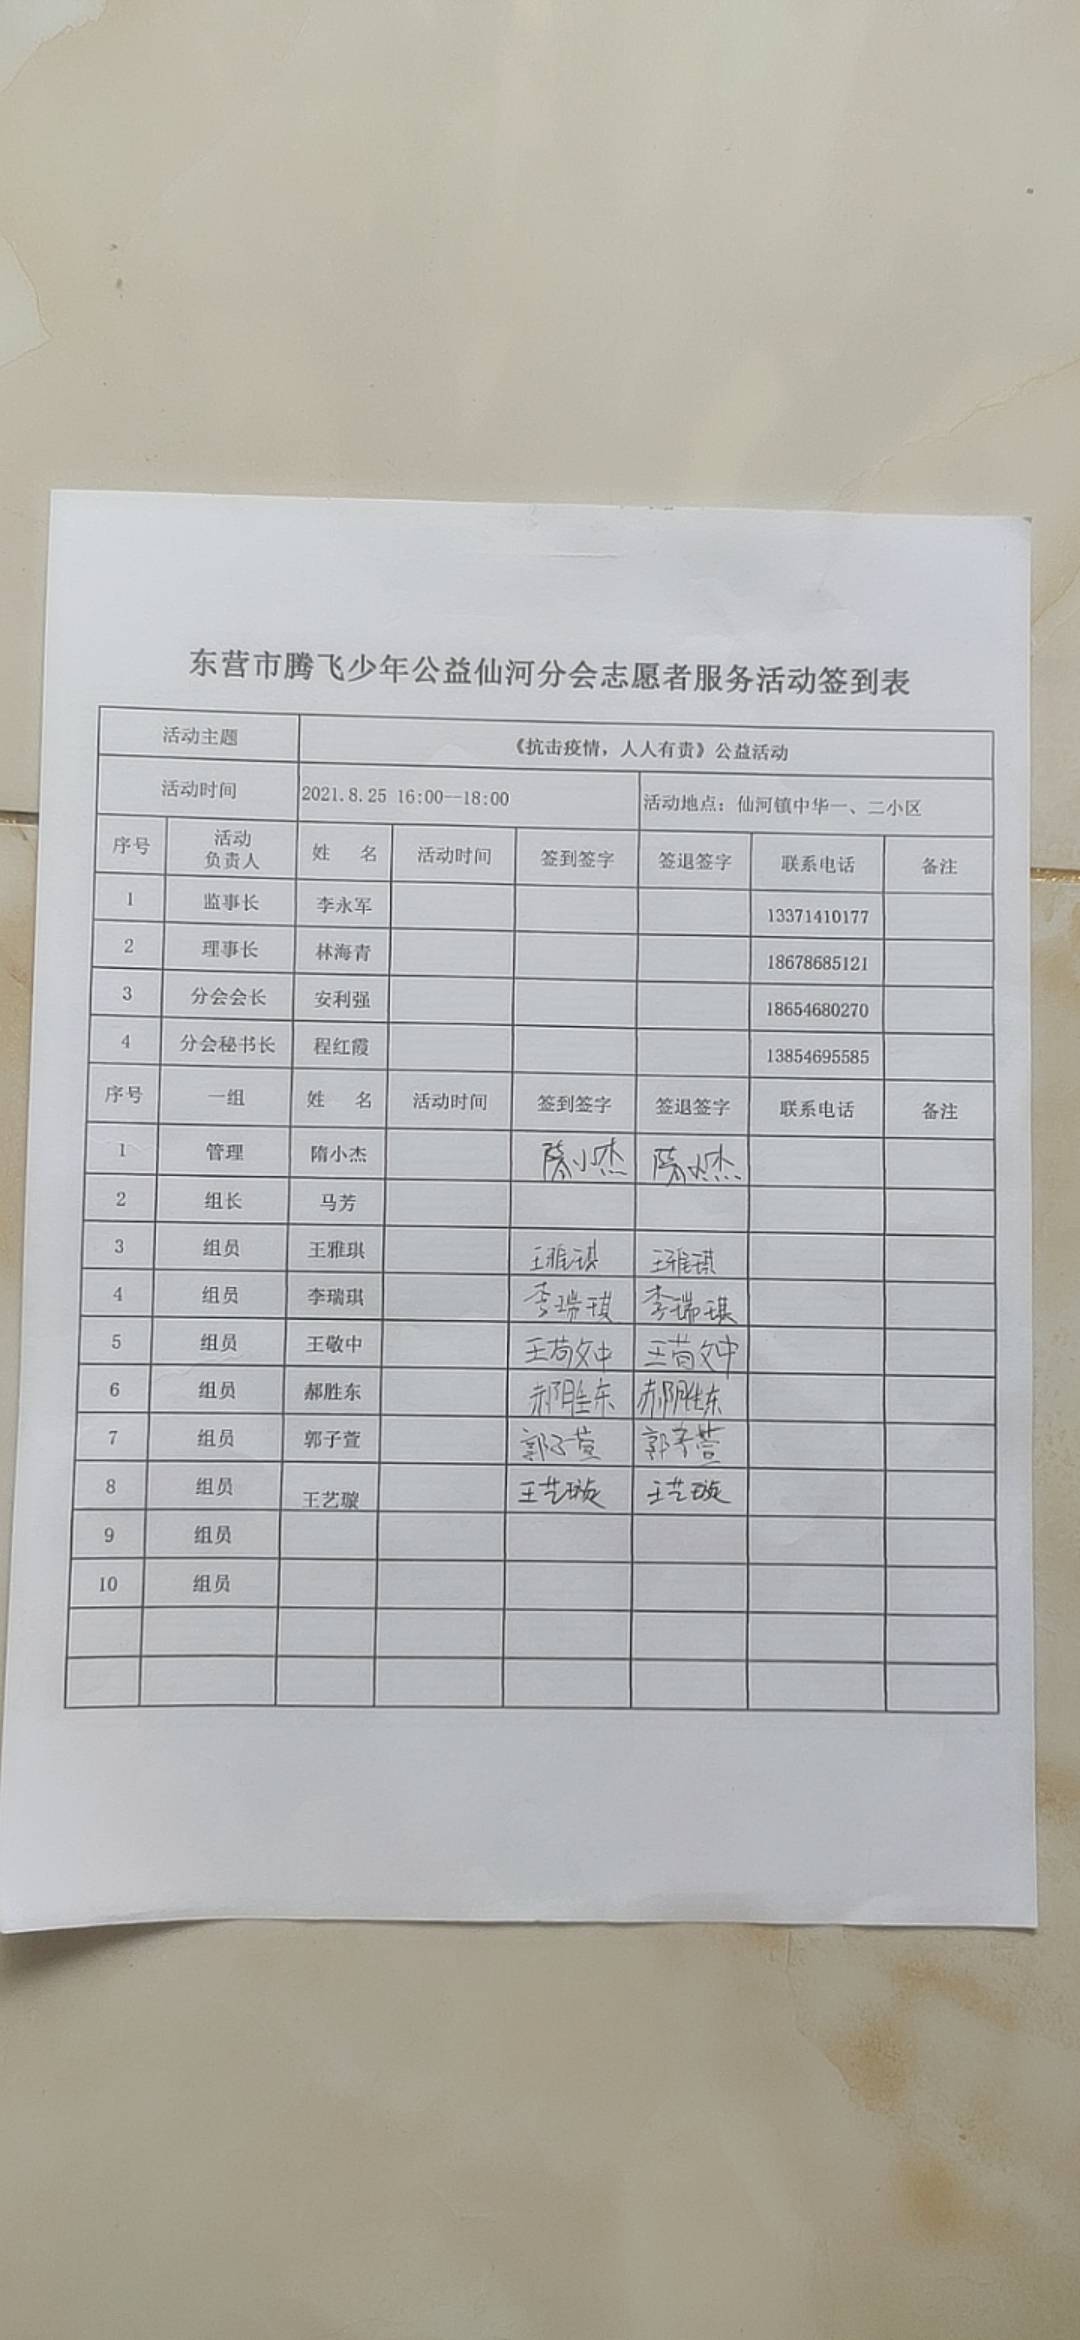 东营市腾飞少年公益仙河分会志愿者服务活动签到表
活动主题 《抗击疫情，人人有责》公益活动
活动时间 2021.8.25 16:00--18:00 活动地点：仙河镇中华一、二小区
序号 活动负责人 姓 名 活动时间 签到签字 签退签字 联系电话 备注
1 监事长 李永军 13371410177
2 理事长 林海青 18678685121
3 分会会长 安利强 18654680270
4 分会秘书长 程红霞 13854695585
序号 一组 姓 名 活动时间 签到签字 签退签字 联系电话 备注
1 管理 隋小杰 隋小杰 隋小杰
2 组长 马芳
3 组员 王雅琪 王雅琪 王雅琪
4 组员 李瑞琪 李瑞琪 李瑞琪
5 组员 王敬中 王敬中 王敬中
6 组员 郝胜东 郝胜东 郝胜东
7 组员 郭子萱 郭子萱 郭子萱
8 组员 王艺璇 王艺璇 王艺璇
9 组员
10 组员